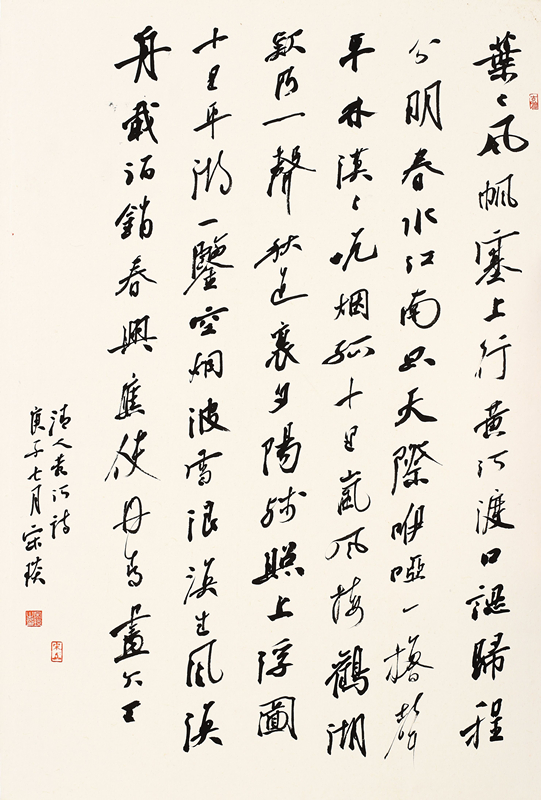 葉〻风帆塞上行黄河渡口認歸程
分明春水江南天際咿啞一櫓聲
平林漠〻晚烟孤十里嵐风接鸛湖
欸乃一聲秋色裏夕陽斜照上浮圖
十里平湖一鑒空烟波雪浪生风渔
舟載酒銷春興應使丹青畫不工
清人袁江诗
庚子七月宋琰